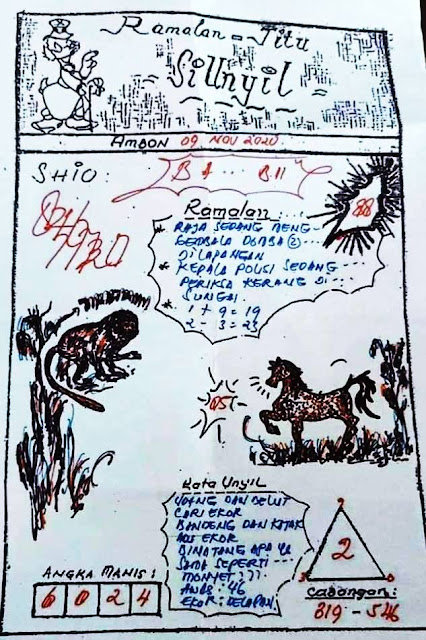 Ramalan = Jitu
SiUnyil
AMBON 09 NOV 2020
SHIO:
BA... BII
88
Ramalan...
* RAJA SEDANG MENG-
GEMBALA DOMBA (2)...
DILAPANGAN
* KEPALA POLISI SEDANG
PERIKSA KERANG DI
SUNGAI.
* 1 + 9 = 19
2 - 3 = 23
05
Kata Unyil
UDANG DAN BELUT
CARI EKOR
BANDENG DAN KATAK
ADU EKOR
BINATANG APA YG
SAMA SEPERTI
MONYET ???
AWAS: 46
EKOR: DELAPAN.
ANGKA MANIS:
6 0 2 4
2
Cadangan:
819 - 546